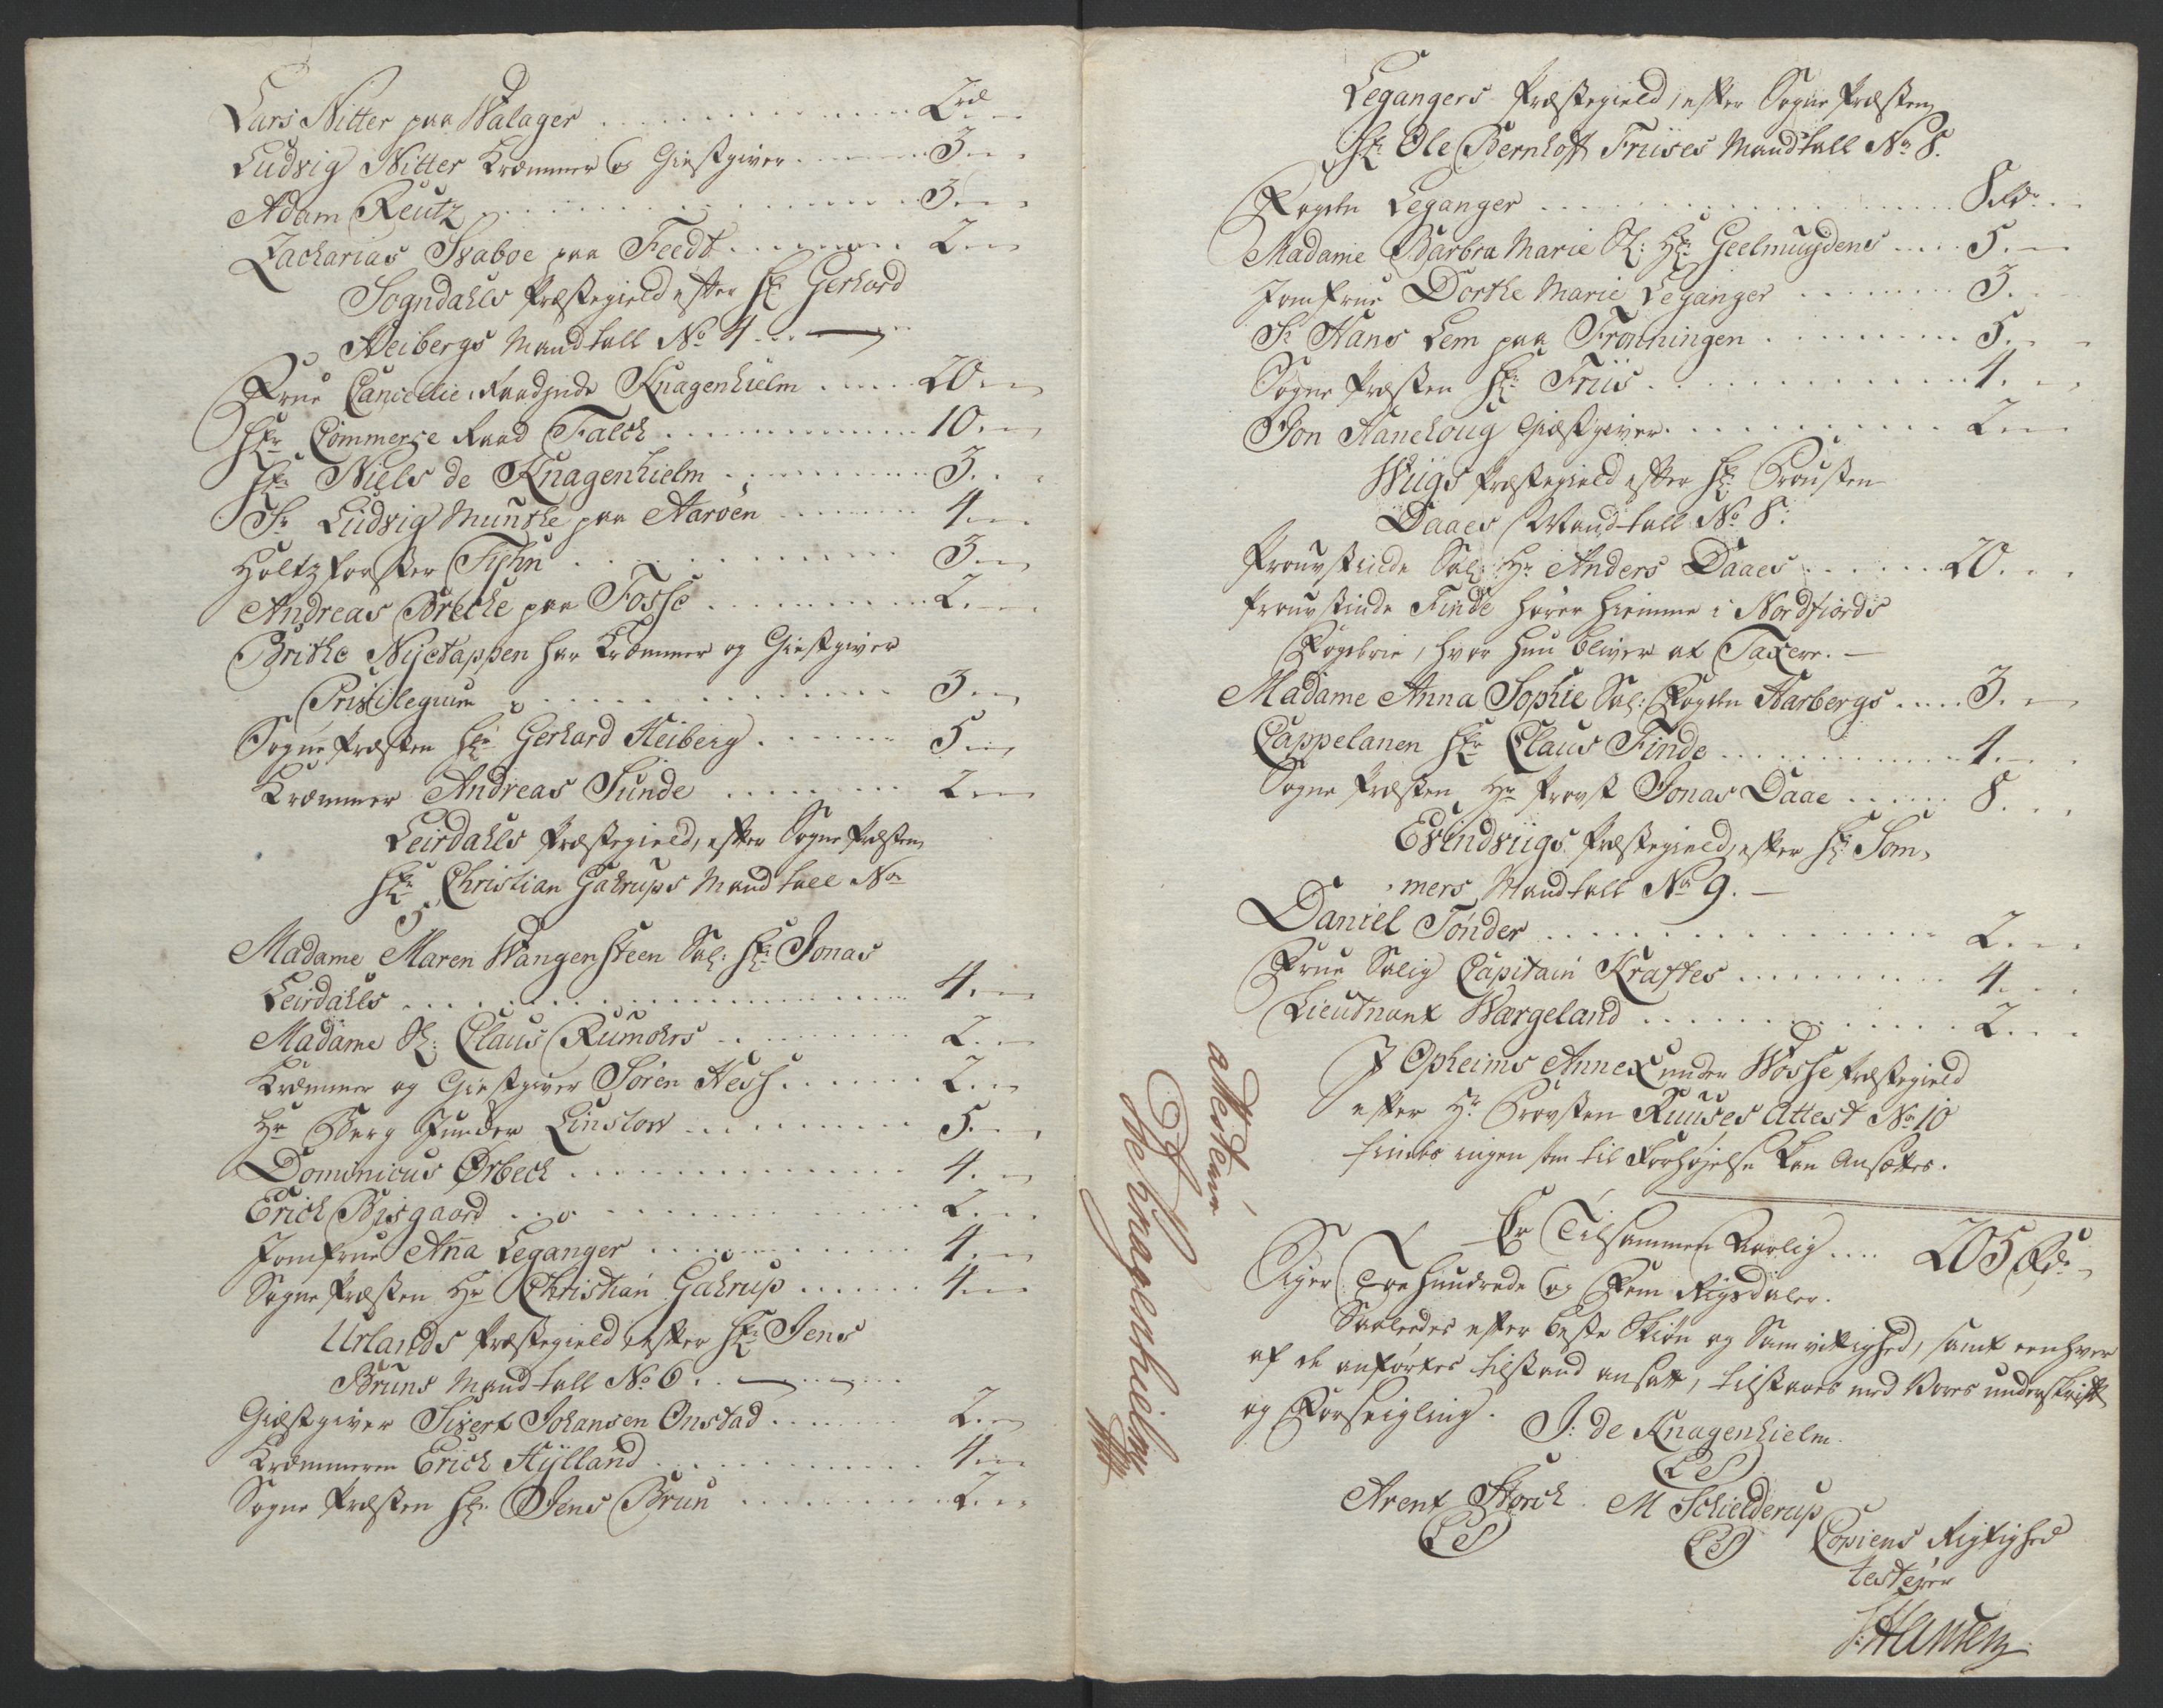 Lars Nitter paa Walager . . . . 2 rd
Ludvig Nitter Kræmmer og Giestgiver . . . . 3. —
Adam Reutz . . . . 3. —
Zacharias Svaboe paa Feedt . . . . 2. —
Sogndahls Præstegield efter Hr. Gerhard
Heibergs Mandtall No 4 . . . —
Frue Cancellie-Raadinde Knagenhielm . . . . 20. —
Hr. Commerce Raad Falch . . . . 10. —
Hr. Niels de Knagenhielm . . . . 3. . .
Sr. Ludvig Munthe paa Aaroen . . . . 4. —
Holtzforster Tyhn . . . . 3. —
Andreas Brecke paa Fosse . . . . 2. —
Brithe Nyetappen har Kræmmer og Giestgiver
Privilegium . . . . 3. —
Sogne Præsten Hr. Gerhard Heiberg . . . . 5. —
Kræmmer Andreas Sunde . . . . 2. —
Leirdahls Præstegield, efter Sogne Præsten
Hr. Christian Gahrups Mandtall No
5
Madame Maren Wangensteen Sal: Hr. Jonas
Leirdahls . . . . 4. —
Madame Sl: Claus Rumohrs . . . . 2. —
Kræmmer og Giestgiver Søren Hess . . . . 2. —
Hr Berg Junder Linstow . . . . 5. —
Dominicus Ørbech . . . . 4. —
Erich Bisgaard . . . . 2. . .
Jomfrue Aña Leganger . . . . 4. —
Sogne Præsten Hr Christian Gahrup . . . . 4. —
Urlands Præstegield efter Hr. Jens
Bruns Mandtall No 6. . —
Giæstgiver Sivert Johansen Onstad . . . . 2. —
Kræmmeren Erich Hylland . . . . 4. —
Sogne Præsten Hr. Jens Brun . . . . 2. —
Legangers Præstegield, efter Sogne Præsten
Hr. Ole Bernhoft Friises Mandtall No 8.
Fogden Leganger . . . . 8 rdr. —
Madame Barbra Marie Sl: Hr. Geelmuydens . . . . 5. —
Jomfrue Dorthe Marie Leganger . . . . 3. —
Sr. Hans Lem paa Frønningen . . . . 5. —
Sogne Præsten Hr. Friis . . . . 4. —
Jon Hanehoug Giæstgiver . . . . 2. —
Wiigs Præstegield efter Hr. Prousten
Daaes Mandtall No 8.
Proustinde Sal: Hr Anders Daaes . . . . 20. . .
Proustinde Finde hører hiemme i Nordfiords
Fogderie, hvor hun bliver at Taxere. —
Madame Anna Sophie Sal: Fogden Aarbergs . . . . 3. —
Cappelanen Hr. Claus Finde . . . . 4. —
Sogne Præsten Hr Provst Jonas Daae . . . . 8. . .
Evindviigs Præstegield, efter Hr. Som,
mers Mandtall No 9. —
Daniel Tønder . . . . 2. —
Frue Salig Capitain Kraftes . . . . 4. . .
Lieutnant Wærgeland . . . . 2. . .
I Opheims Annex under Wosse Præstegield
efter Hr. Provsten Ruuses Attest No 10
findes ingen som til Forhøjelse kan Ansættes.
Er Tilsammen Aarlig . . . . 205 Rd. —
Siger Toe hundrede og Fem Rigsdaler.
Saaledes efter beste Skiøn og Samvittighed, samt eenhver
af de anførtes tilstand ansatt, tilstaaes med Vores underskrift
og Forseigling.
J: de Knagenhielm
(LS)
Arent Storch
(LS)
M Schielderup
(LS)
Copiens Rigtighed
testerer
J: Hansen
attesterer
de Knagenhielm